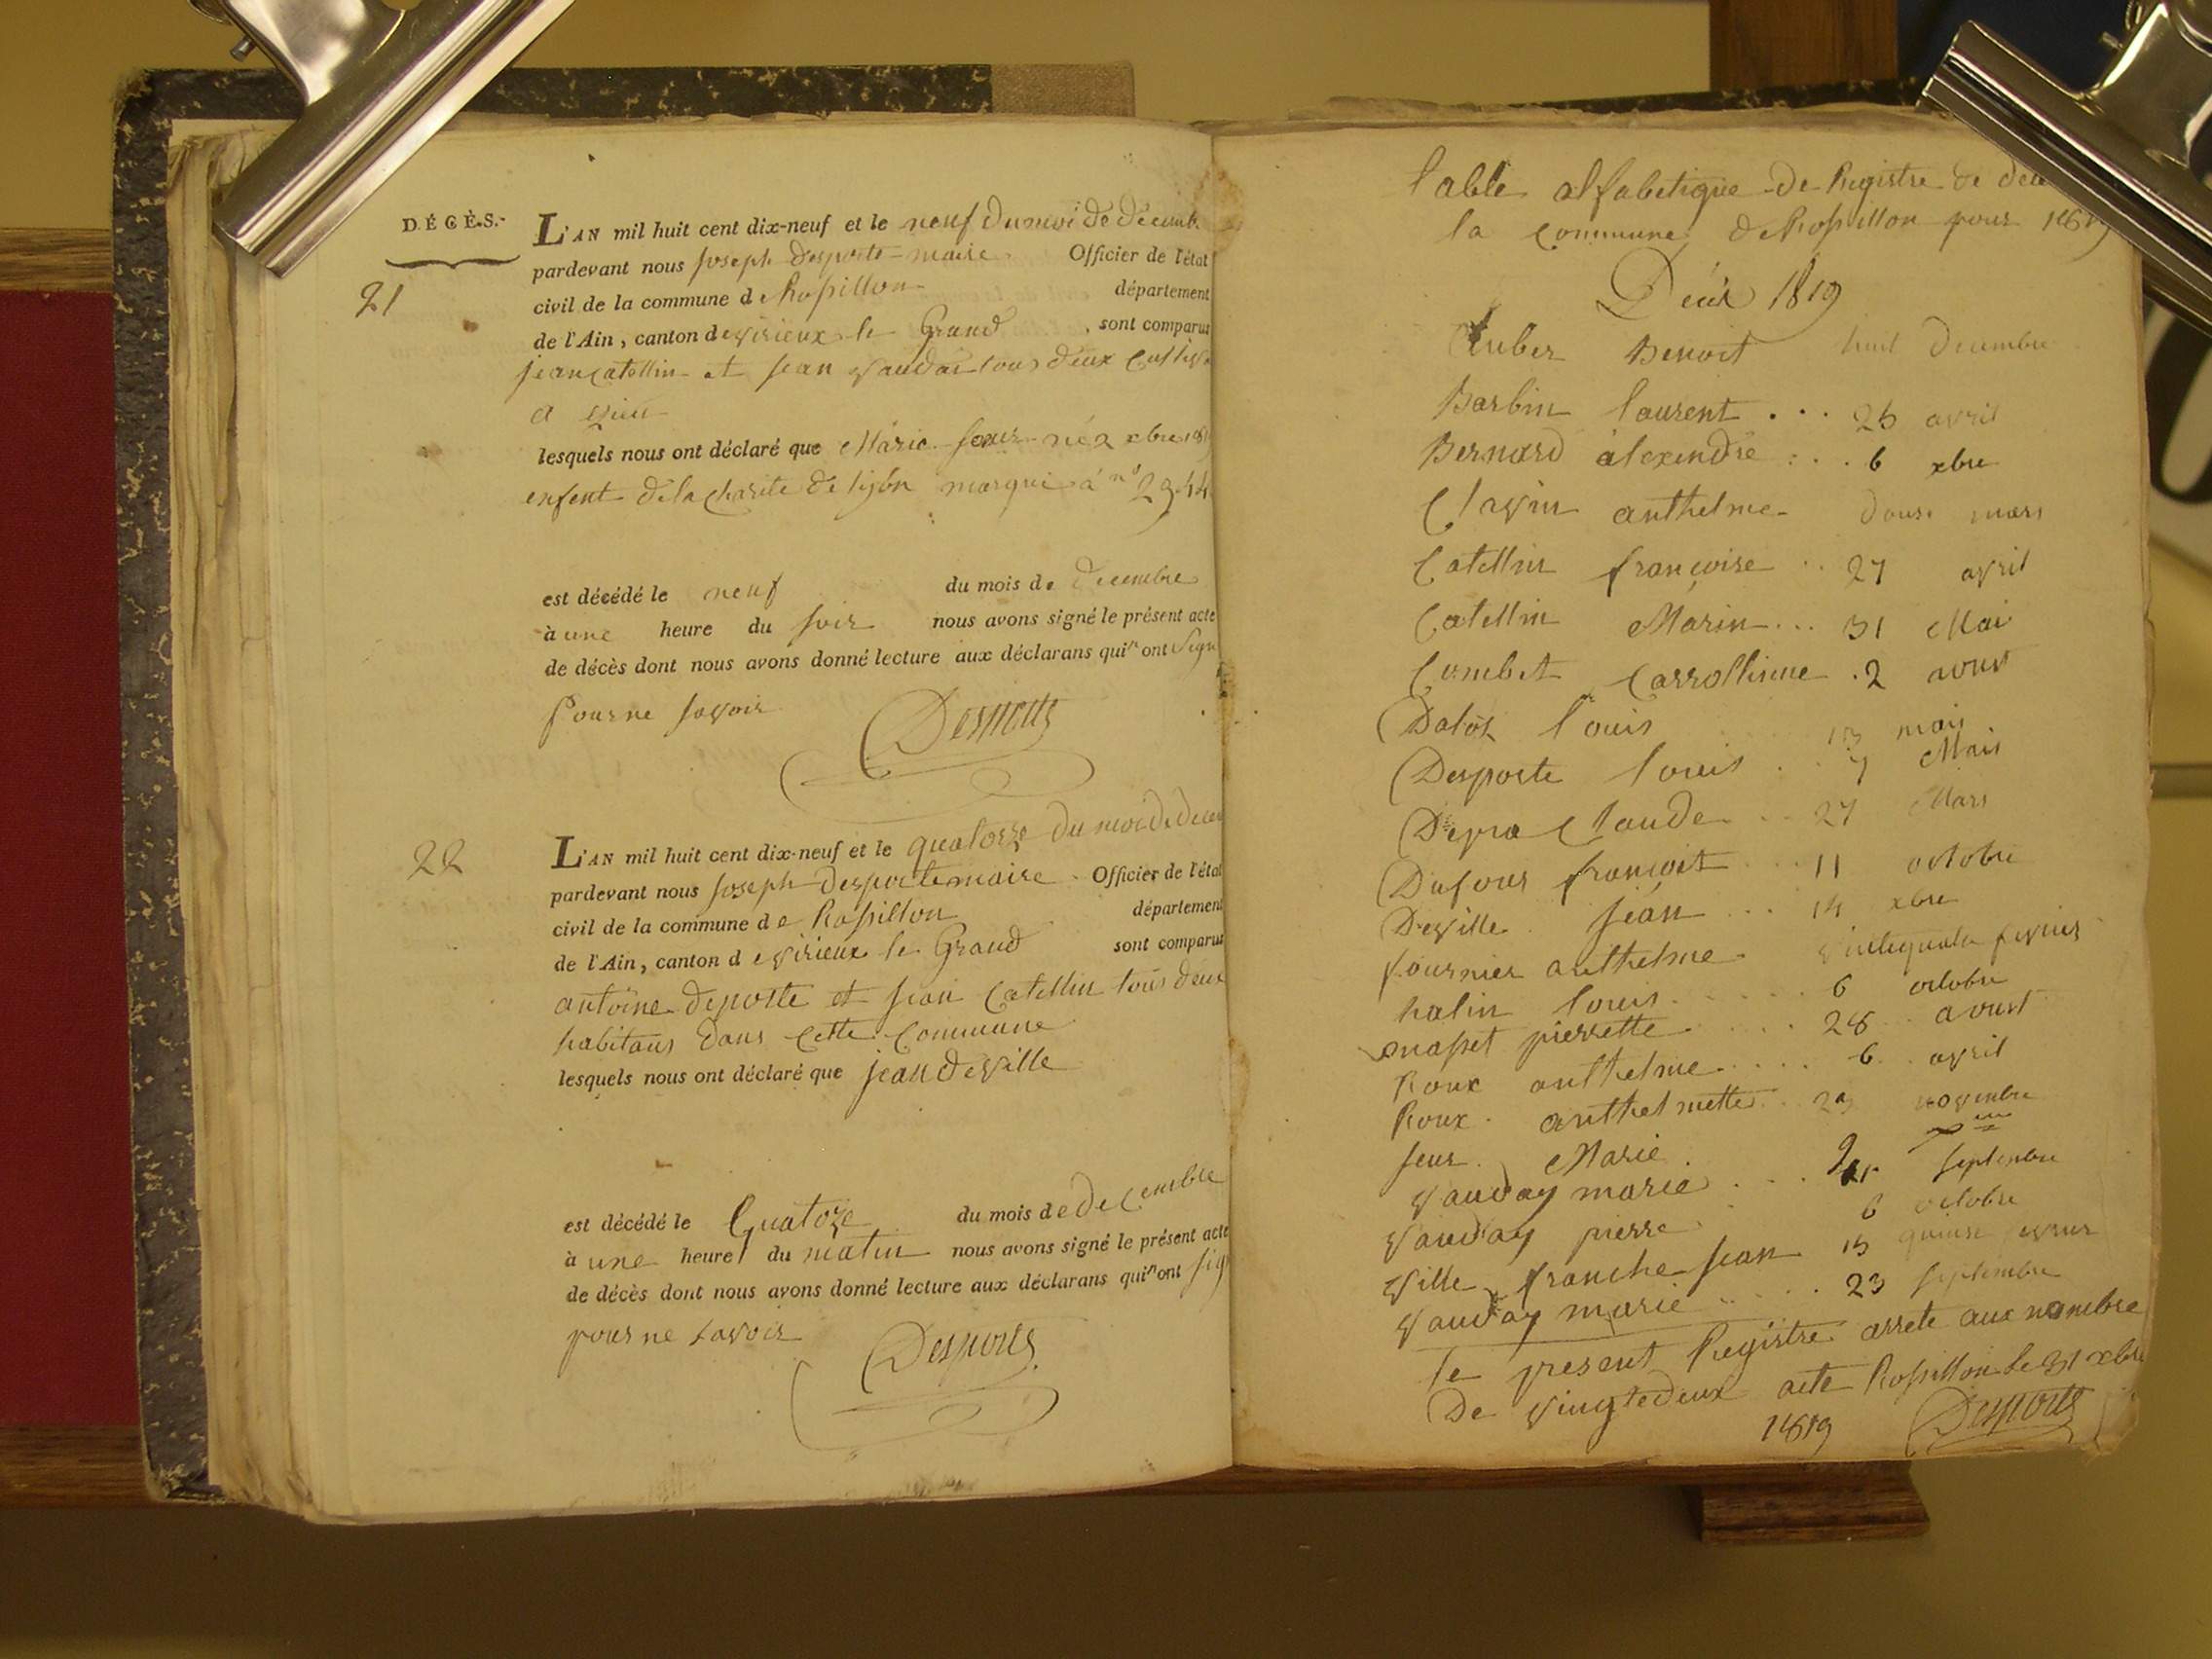 DÉCÈS.
21
L'AN mil huit cent dix-neuf et le neuf du moi de decemb.
pardevant nous joseph desporte maire Officier de l'état
civil de la commune de Rossillon département
de l'Ain, canton de virieux le Grand, sont comparus
jean Catellin et jean vaudai tous deux
a
lesquels nous ont déclaré que Marie Seur née 2 xbre
enfent de la charite de lyon marqué a n° 2944
est décédé le neuf du mois de decembre
à une heure du soir nous avons signé le présent acte
de décès dont nous avons donné lecture aux déclarans qui n ont Sign
pour ne savoir
Desporte
22
L'AN mil huit cent dix-neuf et le quatorze du moi de decem
pardevant nous Joseph Desporte maire. Officier de l'état
civil de la commune de Rossillon département
de l'Ain, canton de virieux le Grand sont comparus
antoine deporte et jean Catellin tous deux
habitans dans cette commune
lesquels nous ont déclaré que jean deville
est décédé le Quatoze du mois de decembre
à une heure du matin nous avons signé le présent acte
de décès dont nous avons donné lecture aux déclarans qui n ont sig
pour ne savoir
Desporte
table alfabetique de Registre de
la commune de Rossillon pour 1819
1819
Benoit huit Decembre
Barbin laurent ... 25 avril
Bernard alexendre ... 6 xbre
Clavin anthelme douse mars
Catellin françoise .. 27 avril
Catellin Marin ... 31 Mai
Combet Carrolline . 2 aoust
louis 13 mais
Desporte louis . 7 Mais
Depra Claude .. 27 Mars
Dufour françoit ... 11 octobre
Deville jean ... 14 xbre
fournier anthelme vintequatre fevrier
halin louis ..... 6 octobre
masset pierrette .... 28 aoust
Roux anthelme .... 6 avril
Roux anthelmette .. 23 novembre
Seur Marie 9 xbre
Vauday marie ... septembre
Vauday pierre 6 octobre
Ville franche jean 15 quinse fevrier
Vauday marie .... 23 septembre
le present Registre arrete aux nombre
De vingtedeux acte Rossillon le 31 xbre
1819 Desporte